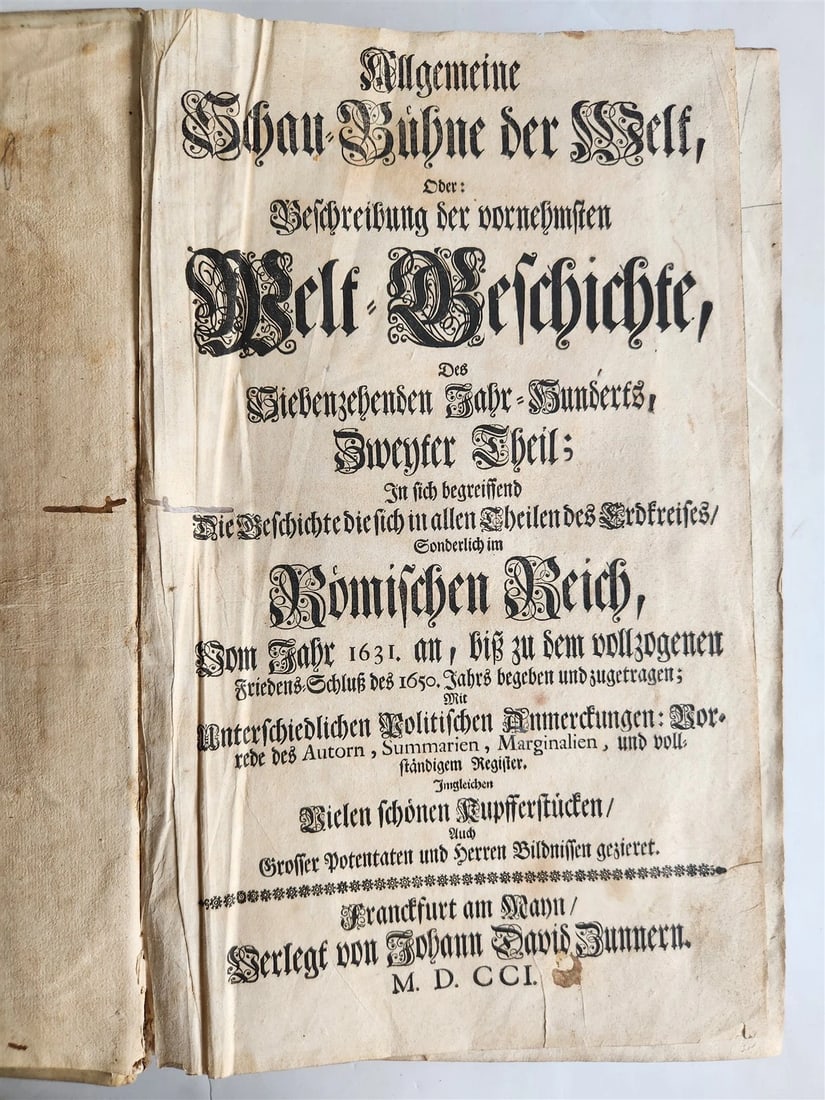 Allgemeine
Schau-Bühne der Welt,
Oder:
Beschreibung der vornehmsten
Welt-Geschichte,
Des
Siebenzehenden Jahr-Hunderts,
Zweyter Theil;
In sich begreiffend
Die Geschichte die sich in allen Theilen des Erdkreises/
Sonderlich im
Römischen Reich,
Vom Jahr 1631. an, biß zu dem vollzogenen
Friedens-Schluß des 1650. Jahrs begeben und zugetragen;
Mit
Unterschiedlichen Politischen Anmerckungen: Vor-
rede des Autorn, Summarien, Marginalien, und voll-
ständigem Register.
Imgleichen
Vielen schönen Kupfferstücken/
Auch
Grosser Potentaten und Herren Bildnissen gezieret.
Franckfurt am Mayn/
Verlegt von Johann David Zunnern.
M. D. CCI.